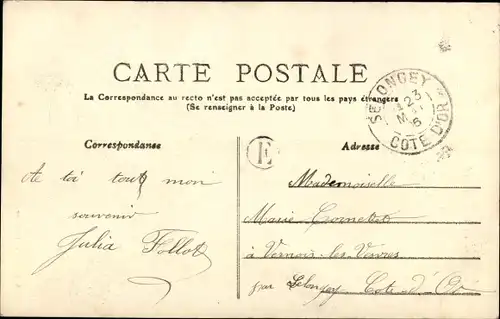 CARTE POSTALE
La Correspondance au recto n'est pas acceptée par tous les pays étrangers
(Se renseigner à la Poste)
SELONGEY
23
M
6
COTE D'OR
Correspondance
E
Adresse
A toi tout mon
souvenir
Julia Follot
Mademoiselle
Marie Cornetet
à Vernois-les-Vesvres
par Selongey Cote-d'Or